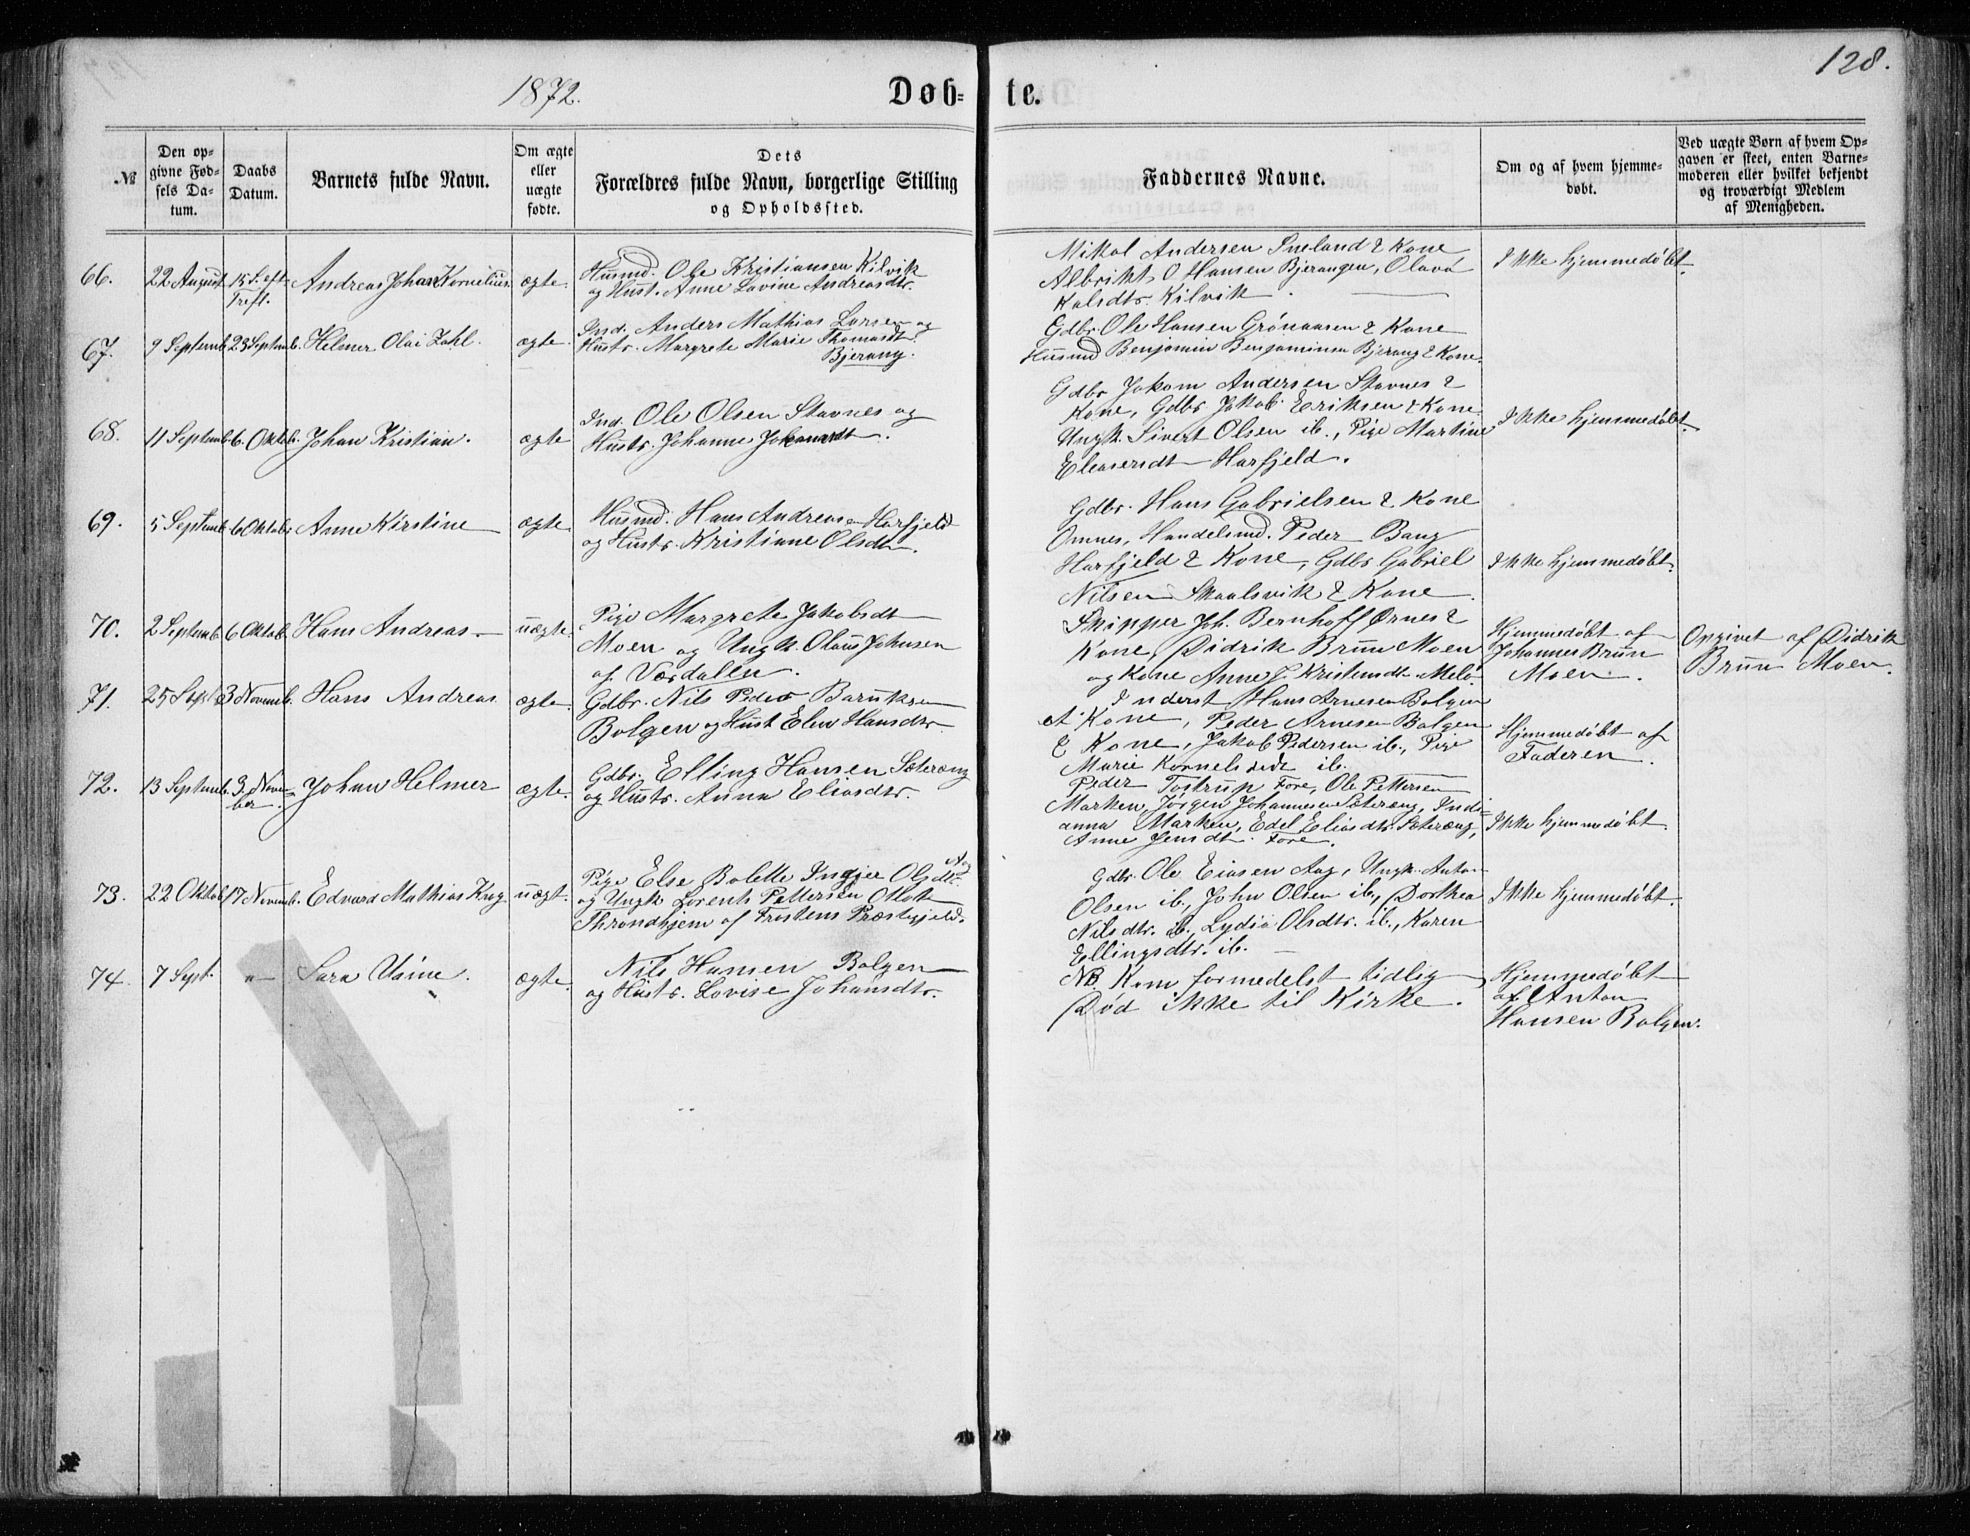 128.
1872.
Døb-te.
№
Den op-
givne Fød-
sels Da-
tum.
Daabs
Datum.
Barnets fulde Navn.
Om ægte
eller
uægte
fødte.
Dets
Forældres fulde Navn, borgerlige Stilling
og Opholdssted.
Faddernes Navne.
Om og af hvem hjemme-
døbt.
Ved uægte Børn af hvem Op-
gaven er skeet, enten Barne-
moderen eller hvilket bekjendt
og troværdigt Medlem
af Menigheden.
66. 22 August 15 S. eft. Andreas Johan Kornelius. ægte.
Treft.
Husmd. Ole Kristiansen Kilvik
og Hust. Anne Lovine Andreasdtr.
Mikal Andersen Sneland & Kone
Albrikt O. Hansen Bjerangen, Olava
Kalsdtr. Kilvik
Ikke hjemmedøbt.
67. 9 Septemb. 23 Septemb. Helmer Olai Zahl. ægte
Ind. Anders Mathias Larsen og
Hustr. Margrete Marie Thomasdt.
Bjerang.
Gdbr. Ole Hansen Grønaasen & Kone
Husmd Benjamin Benjaminsen Bjerang & Kone.
68. 11 Septemb. 6. Oktob. Johan Kristian. ægte
Ind. Ole Olsen Stavnes og
Hustr. Johanne Johansdt.
Gdbr Jokom Andersen Stavnes &
Kone, Gdbr Jakob Eriksen & Kone
Ungk. Sivert Olsen ib., Pige Martine
Eleasersdt Harfjeld.
Ikke hjemmedøbt.
69. 5 Septemb. 6 Oktob. Anne Kirstine ægte
Husmd. Hans Andreasen Harfjeld
og Hustr. Kristianne Olsdtr.
Gdbr. Hans Gabrielsen & Kone
Omnes, Handelsmd. Peder Bang
Harfjeld & Kone, Gdbr Gabriel
Nilsen Skaalsvik & Kone.
Ikke hjemmedøbt.
70. 2 Septemb. 6 Oktob. Hans Andreas. uægte.
Pige Margrete Jakobsdt
Moen og Ungk. Olaus Johnsen
af Værdalen.
Skipper Joh. Bernhoff Ørnes &
Kone, Didrik Bruun Moen
og Kone Anne J. Kristensdtr. Melø.
Hjemmedøbt af
Johannes Bruun
Moen.
Opgivet af Didrik
Bruun Moen.
71. 25 Sept. 3 Novemb. Hans Andreas ægte.
Gdbr. Nils Peder Baruksen
Bolgen og Hust Elen Hansdtr.
Inderst Hans Arnesen Bolgen
& Kone, Peder Arnesen Bolgen
& Kone, Jakob Pedersen ib., Pige
Marie Kornelsdtr ib.
Hjemmedøbt af
Faderen.
72. 13 Septemb. 3 Novem- Johan Helmer ægte.
ber.
Gdbr. Elling Hansen Sæterang
og Hustr. Anna Eliasdtr.
Peder Tostrup Fore, Ole Pettersen
Marken, Jørgen Johannesen Sæterang, Indi-
anna Marken, Edel Eliasdtr. Sæterang,
Anne Jensdt. Fore.
Ikke hjemmedøbt.
73. 22 Oktob. 17 Novemb. Edvard Mathias Krog uægt.
Pige Else Bolette Ingjer Olsdtr. Aag
og Ungk Lorents Pettersen
Throndhjem af Frostens Præstegjeld.
Gdbr. Ole Eiasen Aag, Ungk. Anton
Olsen ib., John Olsen ib., Dorthea
Nilsdtr. ib., Lydia Olsdtr. ib., Karen
Ellingsdtr. ib.
Ikke hjemmedøbt.
74. 7 Sept. " Sara Usine. ægte.
Nils Hansen Bolgen
og Hustr. Lovise Johansdtr.
NB. Kom formedelst tidlig
Død ikke til Kirke.
Hjemmedøbt
af Anton
Hansen Bolgen.